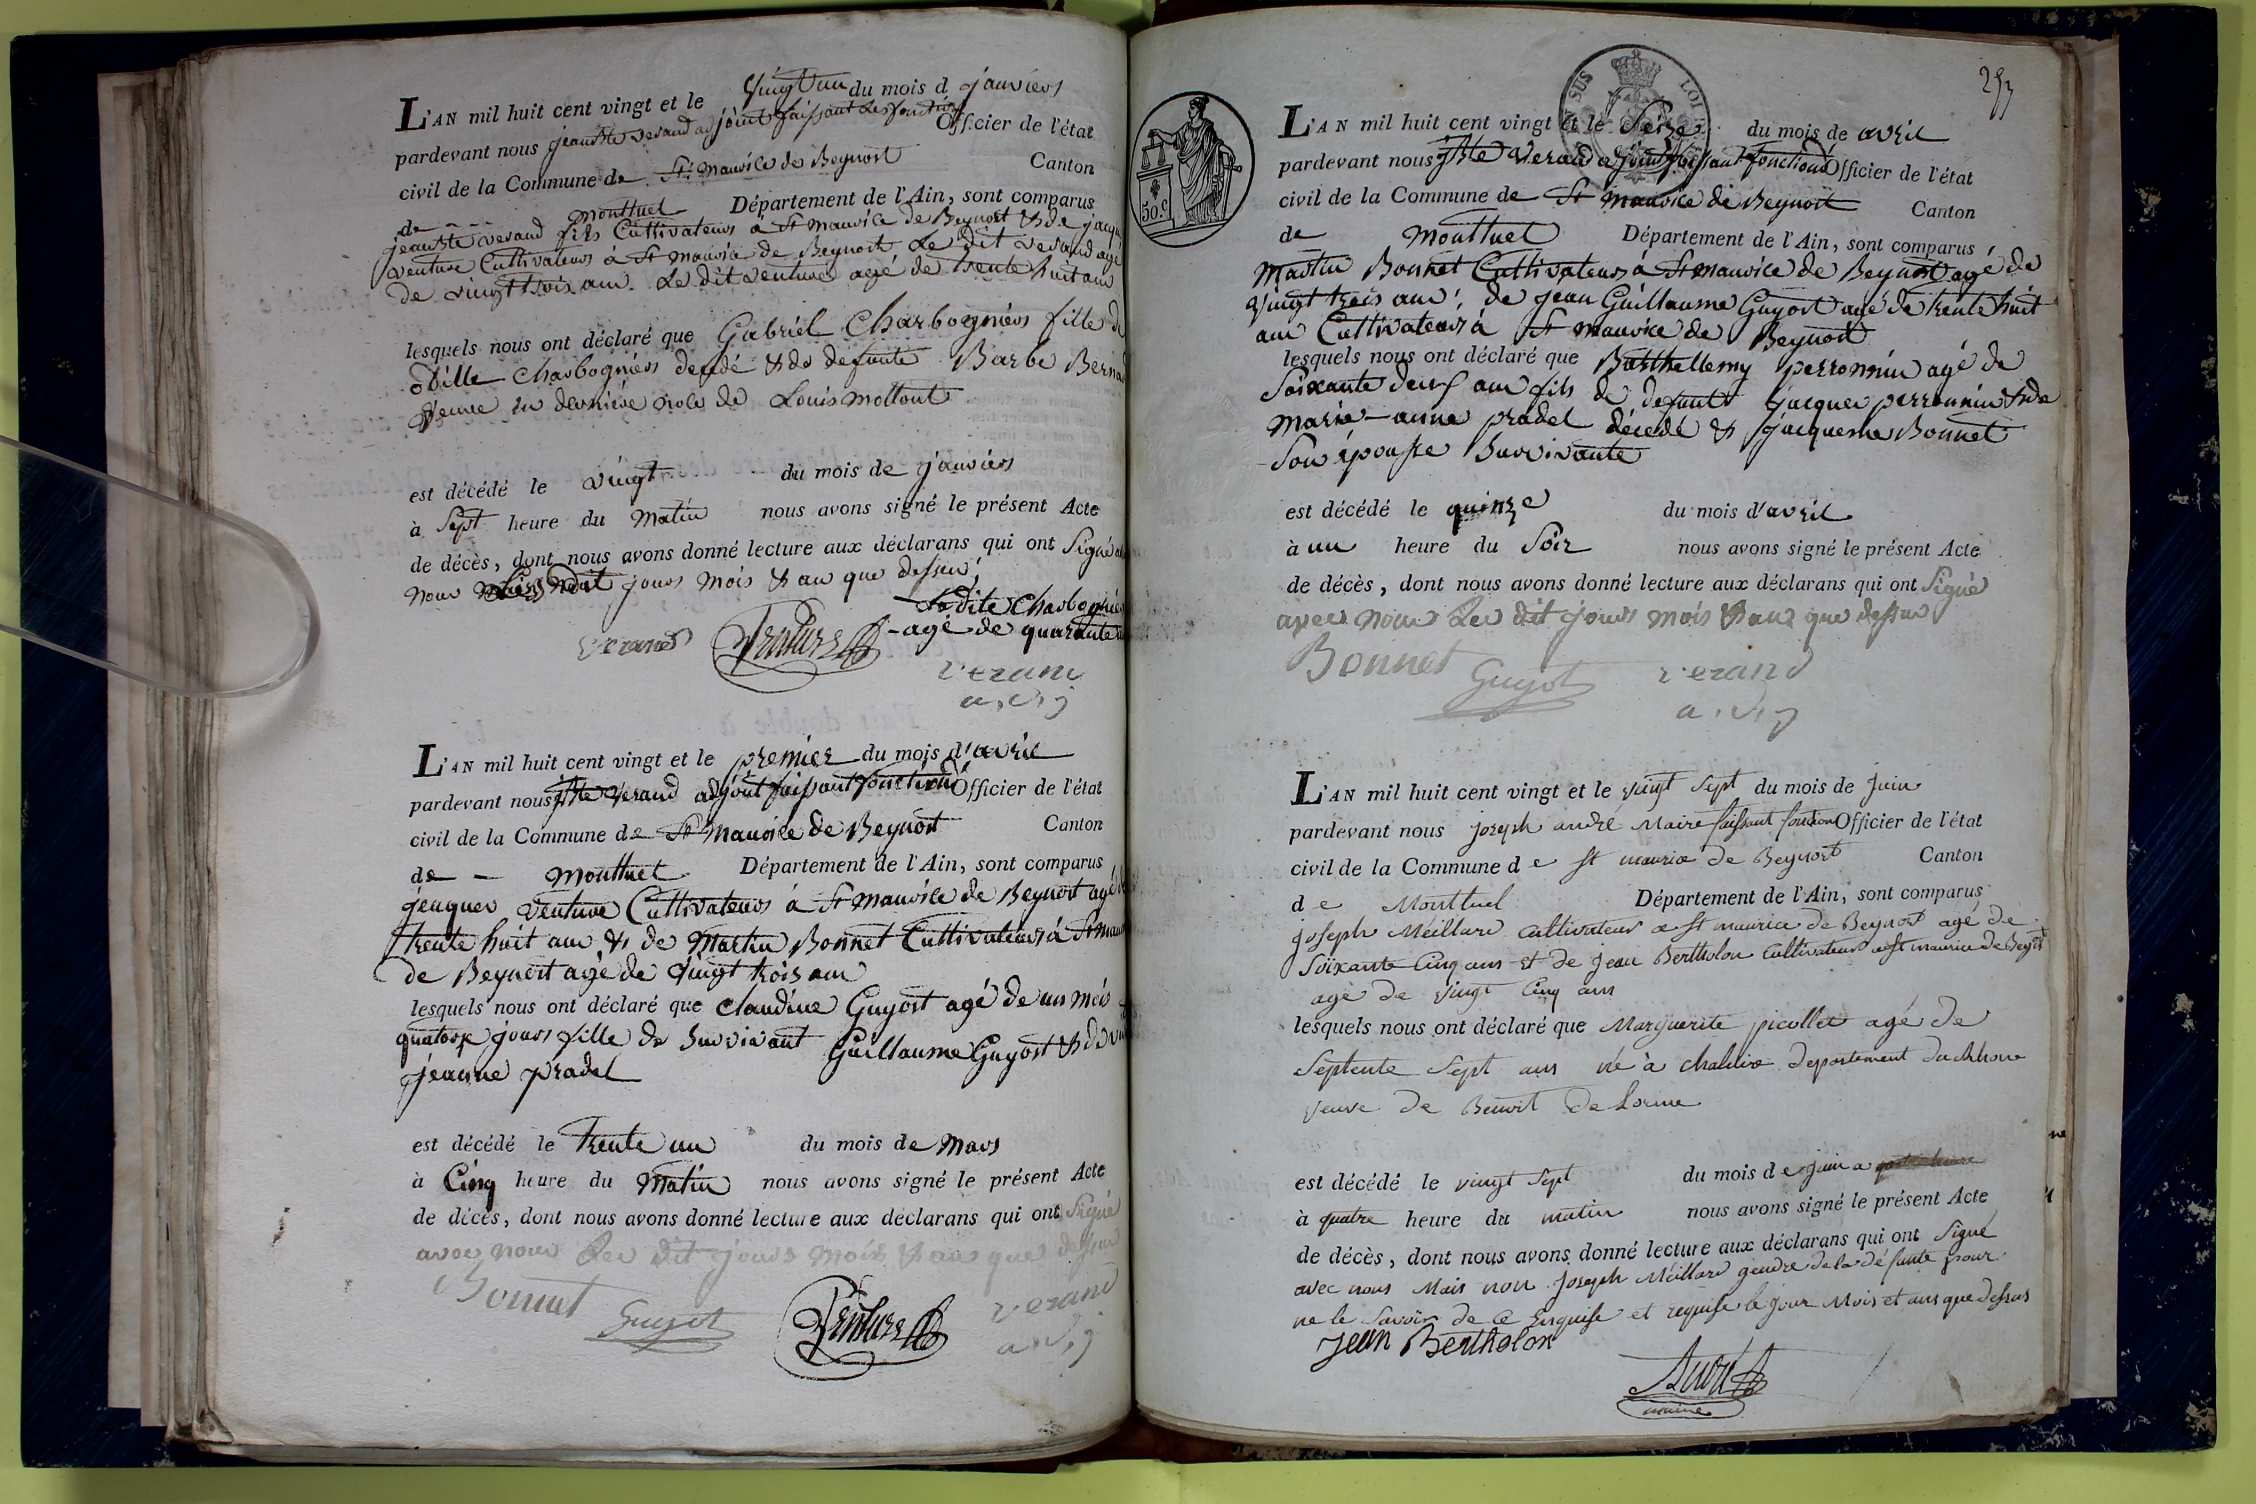 L'AN mil huit cent vingt et le vingt un du mois d janviers
pardevant nous jean Bte verand adjoint faissant les fonctions Officier de l'état
civil de la Commune de St mauvice de Beynost Canton
de montluel Département de l'Ain, sont comparus
jean Bte verand fils Cultivateurs a St mauvice de Beynost & de jacque
venture Cultivateurs à St mauvice de Beynost Le dit verand agé
de vingt trois ans. Le dit venture agé de trente huit ans
lesquels nous ont déclaré que Gabriel Charbogniers fille de
Charbogniers decedé & de defunte Barbe Berna
veuve en derniére nole de Louis mottout
est décédé le vingt du mois de janviers
à Sept heure du matin nous avons signé le présent Acte
de décès, dont nous avons donné lecture aux déclarans qui ont Signé
nous jours mois & an que dessus
La dite Charbognier
agé de quarante
verand Venture
verand
a.d.j
L'AN mil huit cent vingt et le premier du mois d'avril
pardevant nous jBte verand adjoint faissant fonctions Officier de l'état
civil de la Commune de St Mauvice de Beynost Canton
de montluel Département de l'Ain, sont comparus
jacques venture Cultivateurs a St mauvice de Beynost agé
trente huit ans & de Martin Bonnet Cultivateurs à St mau
de Beynost agé de vingt trois ans
lesquels nous ont déclaré que claudine Guyost agé de un mois
quatorze jours fille de survivant Guillaume Guyost & de
jeanne pradel
est décédé le trente un du mois de mars
à Cinq heure du Matin nous avons signé le présent Acte
de décès, dont nous avons donné lecture aux déclarans qui ont Signé
avec nous Les dit jours mois & an que dessus
Bonnet Guyot Venture verand
a.d.j
253
50.C
SUS LOI
L'AN mil huit cent vingt et le Seize du mois de avril
pardevant nous jBte verand adjoint faissant fonctions Officier de l'état
civil de la Commune de St mauvice de Beynost Canton
de montluel Département de l'Ain, sont comparus
Martin Bonnet Cultivateurs à St mauvice de Beynost agé de
vingt trois ans, de jean Guillaume Guyost agé de trente huit
ans Cultivateurs à St mauvice de Beynost
lesquels nous ont déclaré que Barthellemy perronnin agé de
Soixante deux ans fils de defunt jacques perronnin & de
marie-anne pradel décedé & jacquemme Bonnet
Son épousse Survivante
est décédé le quinze du mois d'avril
à un heure du Soir nous avons signé le présent Acte
de décès, dont nous avons donné lecture aux déclarans qui ont Signé
avec nous Les dit jours mois & an que dessus
Bonnet Guyot verand
a.d.j
L'AN mil huit cent vingt et le vingt Sept du mois de juin
pardevant nous joseph andré Maire faissant fonction Officier de l'état
civil de la Commune de st maurice de Beynost Canton
de Montluel Département de l'Ain, sont comparus
joseph Meillard cultivateur a st maurice de Beynost agé de
Soixante Cinq ans et de jean Bertholon Cultivateur a st maurice de Beyost
agé de vingt Cinq ans
lesquels nous ont déclaré que Marguerite picollet agé de
Septente Sept ans né à departement du Rhone
veuve de Benoit de Lorme
est décédé le vingt Sept du mois de juin a
à quatre heure du matin nous avons signé le présent Acte
de décès, dont nous avons donné lecture aux déclarans qui ont Signé
avec nous Mais non joseph Méillard gendre de la défunte pour
ne le Savoir de ce Enquise et requise le jour Mois et ans que dessus
jean Bertholon
André
maire